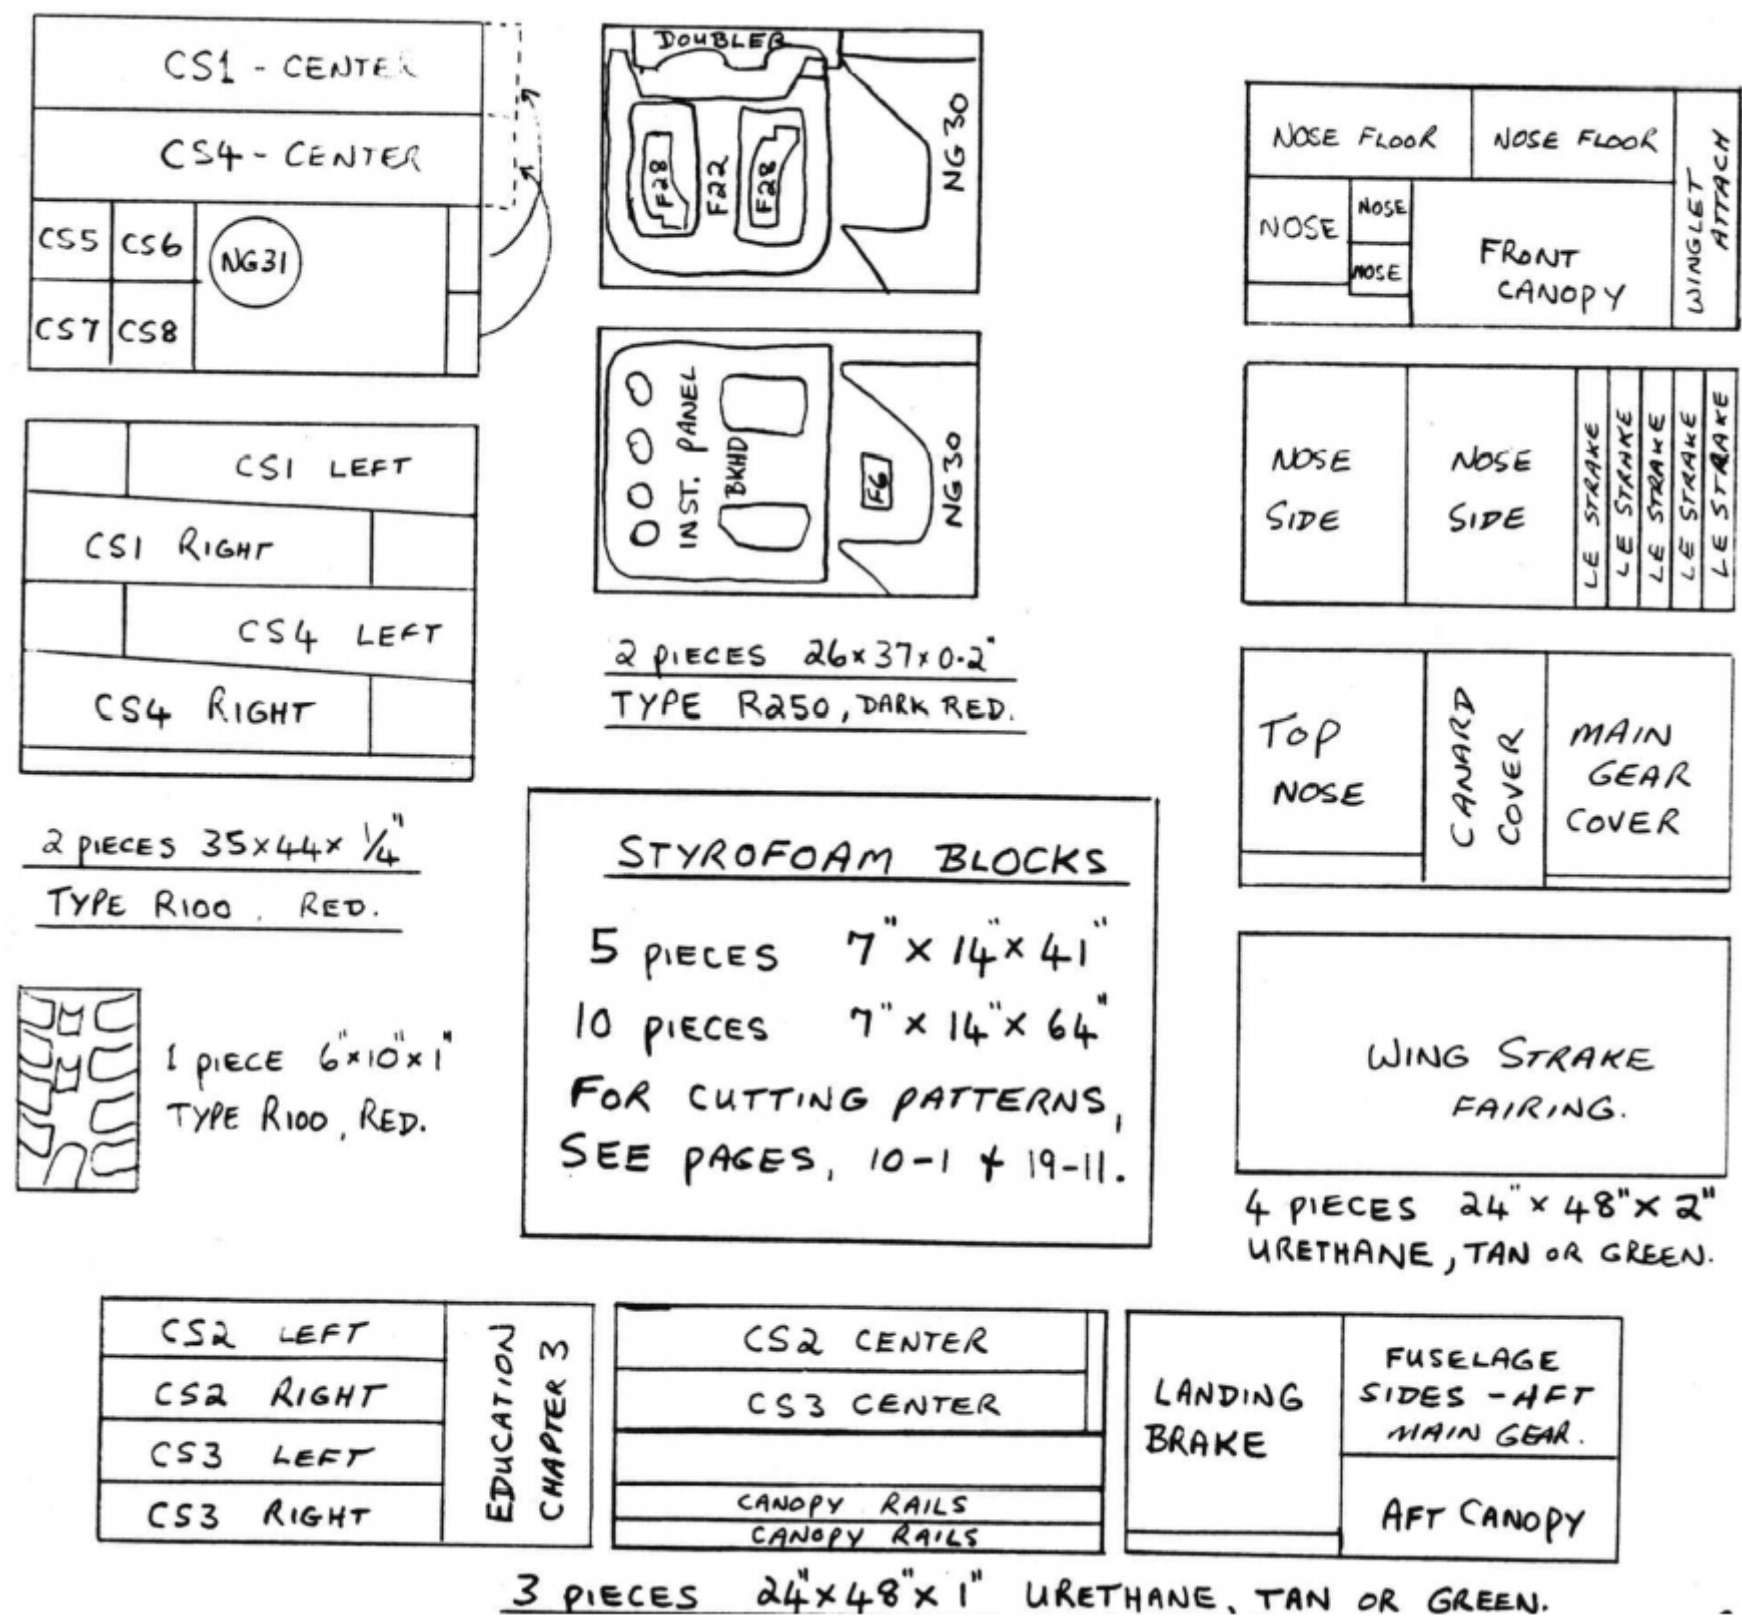 CS1 - CENTER
CS4 - CENTER
CS5 CS6
NG31
CS7 CS8
CS1 LEFT
CS1 RIGHT
CS4 LEFT
CS4 RIGHT
2 PIECES 35x44x 1/4"
TYPE R100, RED.
1 PIECE 6"x10"x1"
TYPE R100, RED.
DOUBLER
F28
F22
F28
NG 30
INST. PANEL
BKHD
F6
NG 30
2 PIECES 26x37x0.2"
TYPE R250, DARK RED.
STYROFOAM BLOCKS
5 PIECES 7"x14"x41"
10 PIECES 7"x14"x64"
FOR CUTTING PATTERNS,
SEE PAGES, 10-1 & 19-11.
NOSE FLOOR
NOSE FLOOR
WINGLET
ATTACH
NOSE
NOSE
NOSE
FRONT
CANOPY
NOSE
SIDE
NOSE
SIDE
LE STRAKE
LE STRAKE
LE STRAKE
LE STRAKE
LE STRAKE
TOP
NOSE
CANARD
COVER
MAIN
GEAR
COVER
WING STRAKE
FAIRING.
4 PIECES 24"x48"x2"
URETHANE, TAN OR GREEN.
CS2 LEFT
CS2 RIGHT
CS3 LEFT
CS3 RIGHT
EDUCATION
CHAPTER 3
CS2 CENTER
CS3 CENTER
CANOPY RAILS
CANOPY RAILS
LANDING
BRAKE
FUSELAGE
SIDES - AFT
MAIN GEAR.
AFT CANOPY
3 PIECES 24"x48"x1" URETHANE, TAN OR GREEN.